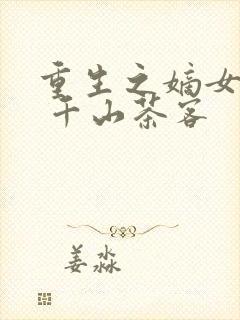 重生之嫡女
千山茶客
姜淼